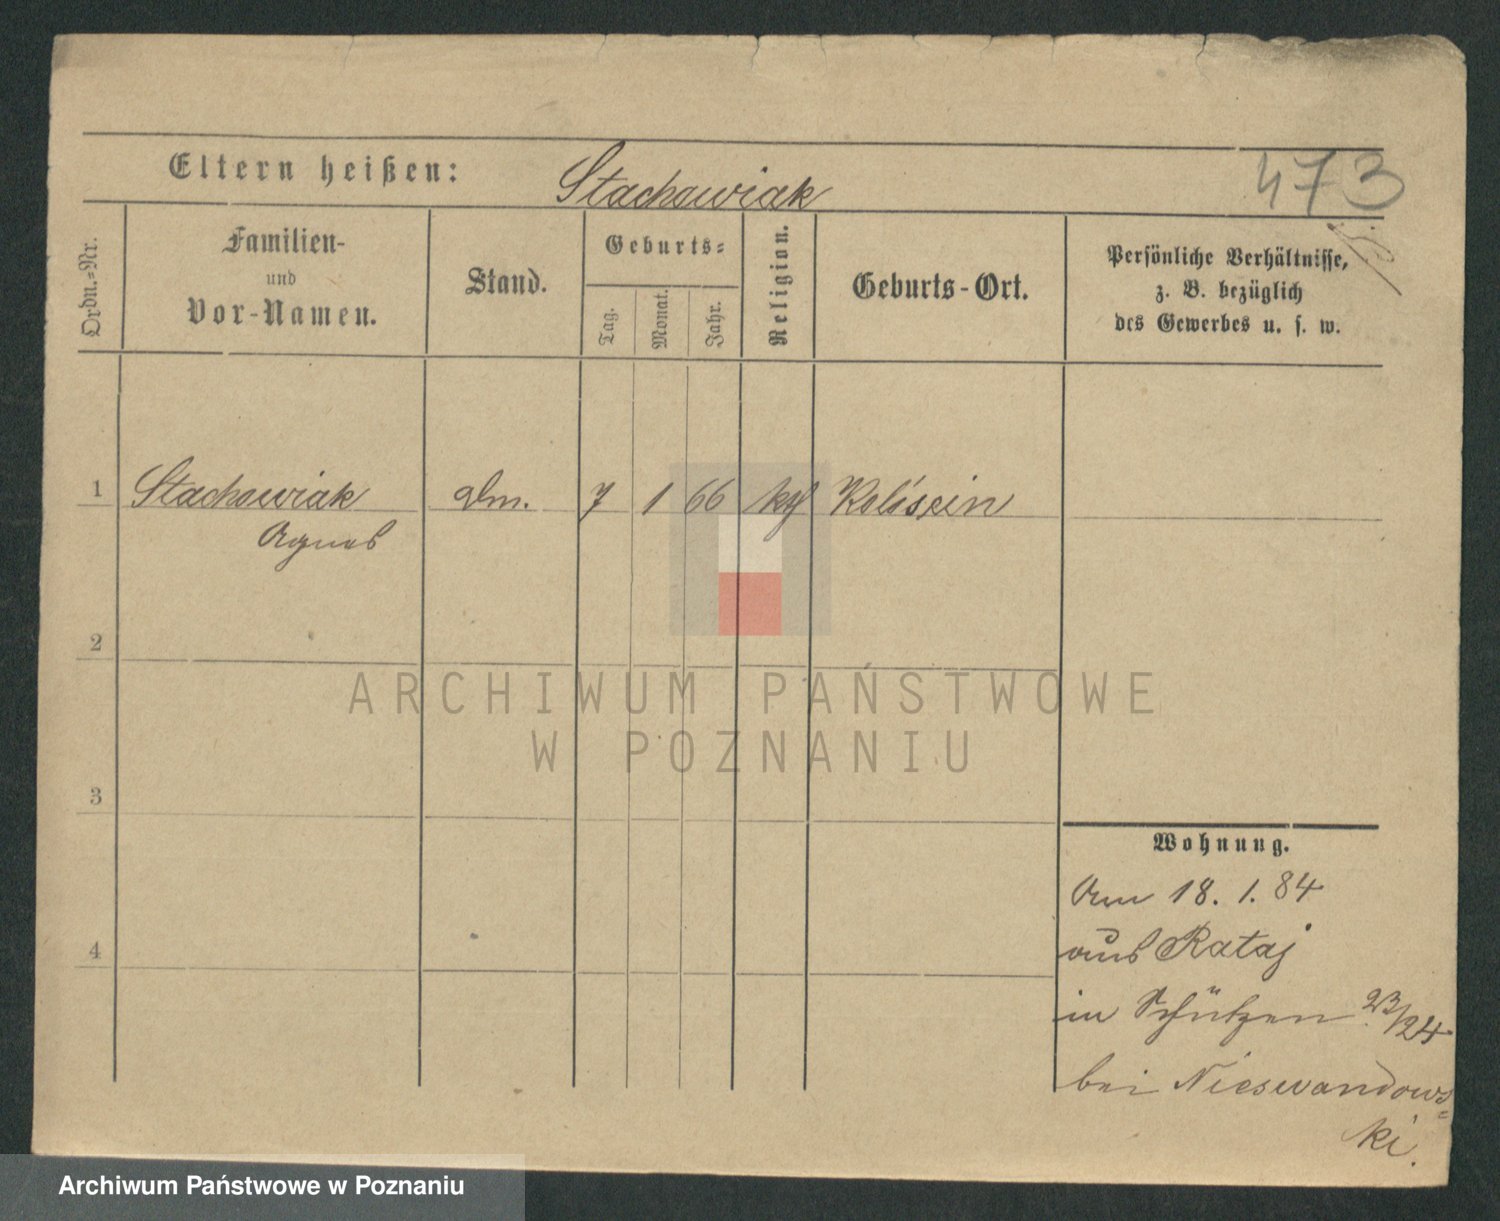 Eltern heißen: Stachowiak
473
Ordn.-Nr.
Familien-
und
Vor-Namen.
Stand.
Geburts-
Tag.
Monat.
Jahr.
Religion.
Geburts-Ort.
Persönliche Verhältnisse,
z. B. bezüglich
des Gewerbes u. s. w.
1 Stachowiak 7 1 66 kth
Agnes
2
3
4
Wohnung.
Am 18. 1. 84
aus Rataj
in Schützen 23/24
bei Nieswandows=
ki.
ARCHIWUM PAŃSTWOWE
W POZNANIU
Archiwum Państwowe w Poznaniu